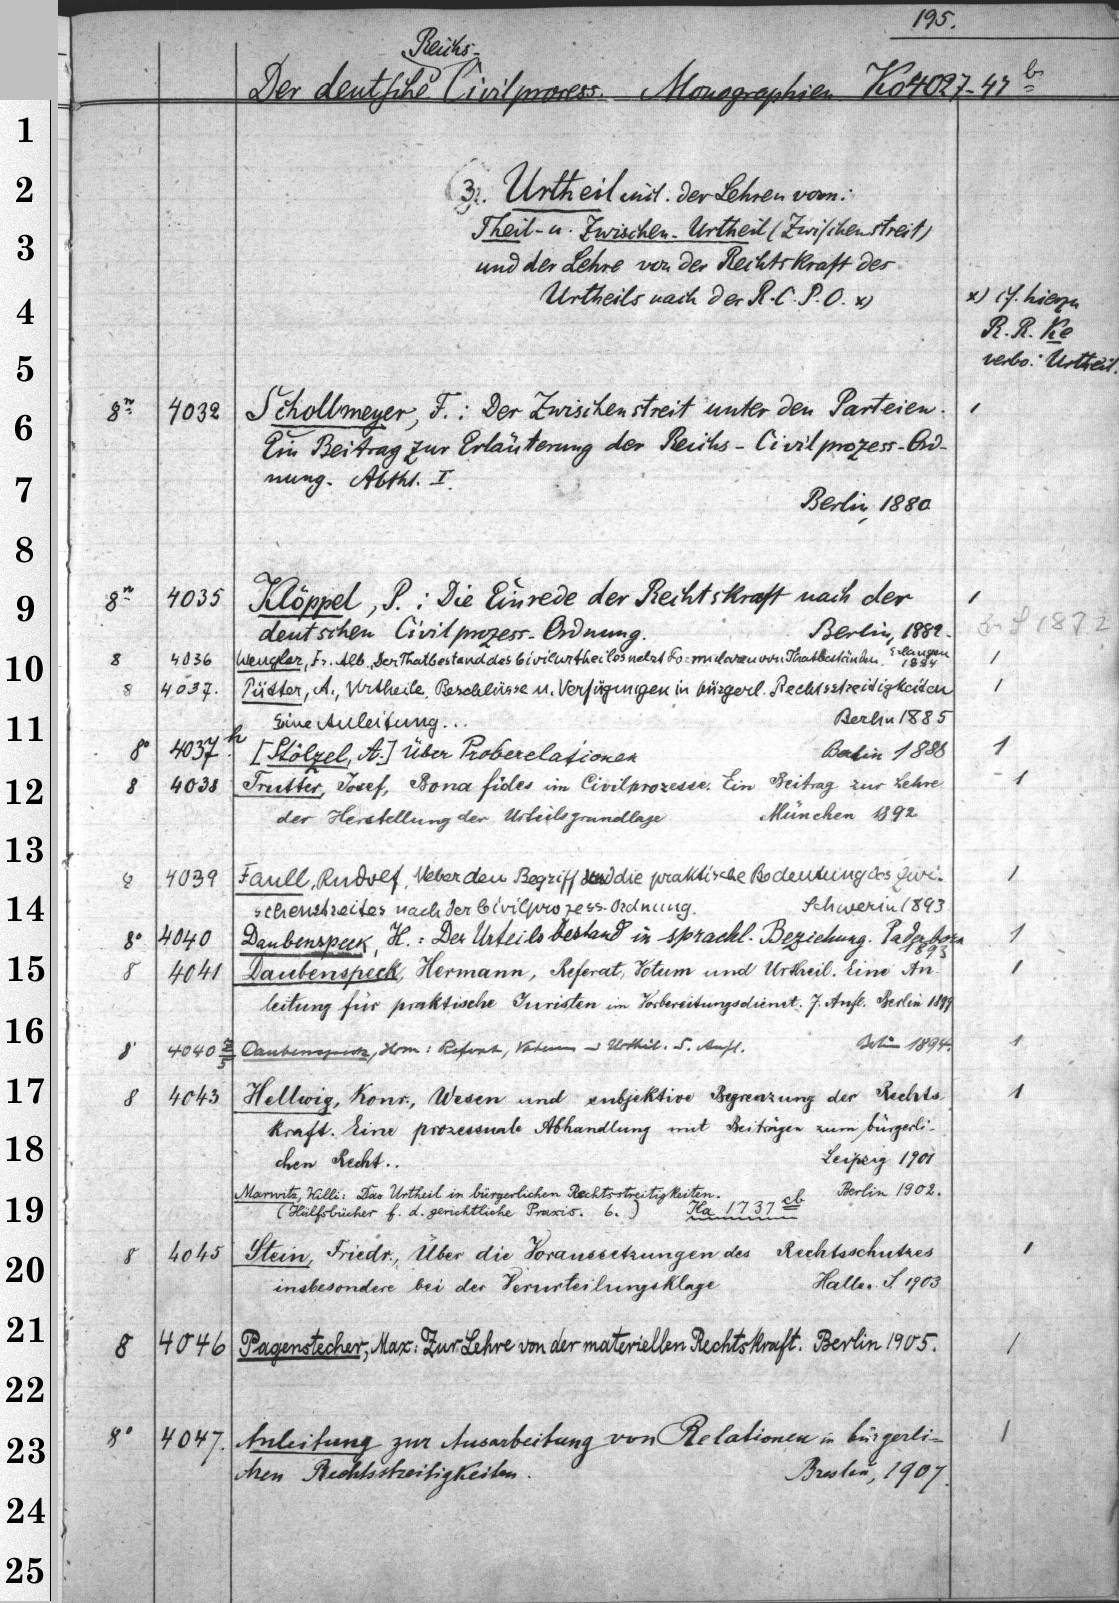 195.
Reichs-
Der deutsche Civilprozess. Monographien Ko 4027-47 b
3. Urtheil inil. der Lehren vom:
Theil- u. Zwischen-Urtheil (Zwischenstreit)
und der Lehre von der Rechtskraft des
Urtheils nach der R.C.P.O. x)
x) cf. hierzu
R.R. Ke
verbo: Urtheil.
8° 4032 Schollmeyer, F.: Der Zwischenstreit unter den Parteien. 1
Ein Beitrag zur Erläuterung der Reichs-Civilprozess-Ord-
nung. Abthl. I.
Berlin, 1880
8° 4035 Klöppel, P.: Die Einrede der Rechtskraft nach der 1
deutschen Civilprozess-Ordnung. Berlin, 1882.
8 4036 Wengler, Fr. Alb. Der Thatbestand des Civilurtheiles nebst Formularen von Thatbeständen. Erlangen 1884 1
8 4037. Pütter, A., Urtheile, Beschlüsse u. Verfügungen in bürgerl. Rechtsstreitigkeiten 1
Eine Anleitung... Berlin 1885
8° 4037 h [Stölzel, A.] Über Proberelationen Berlin 1888 1
8 4038 Trutter, Josef, Bona fides im Civilprozesse. Ein Beitrag zur Lehre 1
der Herstellung der Urteilsgrundlage München 1892
8 4039 Faull, Rudolf, Ueber den Begriff und die praktische Bedeutung des Zwi- 1
schenstreites nach der Civilprozess-Ordnung. Schwerin 1893
8° 4040 Daubenspeck, H.: Der Urteilsbestand in sprachl. Beziehung. Paderborn 1893 1
8 4041 Daubenspeck, Hermann, Referat, Votum und Urtheil. Eine An- 1
leitung für praktische Juristen im Vorbereitungsdienst. 7. Aufl. Berlin 1899
8 4040 Daubenspeck, Herm: Referat, Votum u Urtheil. 5. Aufl. Berlin 1894. 1
8 4043 Hellwig, Konr., Wesen und subjektive Begrenzung der Rechts 1
kraft. Eine prozessuale Abhandlung mit Beiträgen zum bürgerli-
chen Recht.. Leipzig 1901
Marwitz, Willi: Das Urtheil in bürgerlichen Rechtsstreitigkeiten. Berlin 1902.
(Hülfsbücher f. d. gerichtliche Praxis. 6.) Ka 1737 cb
8 4045 Stein, Friedr., Über die Voraussetzungen des Rechtsschutzes 1
insbesondere bei der Verurteilungsklage Halle a. S 1903
8 4046 Pagenstecher, Max: Zur Lehre von der materiellen Rechtskraft. Berlin 1905. 1
8° 4047. Anleitung zur Ausarbeitung von Relationen in bürgerli- 1
chen Rechtsstreitigkeiten. Breslau, 1907.
1
2
3
4
5
6
7
8
9
10
11
12
13
14
15
16
17
18
19
20
21
22
23
24
25